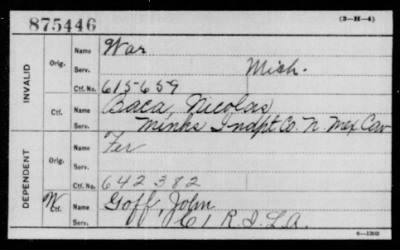 875446
(3-H-4)
INVALID
Orig.
Name War
Serv. Mich.
Ctf. No. 615659
Ctf.
Name Baca, Nicolas
Serv. Minks Indpt. Co. N. Mex Cav
DEPENDENT
Orig.
Name Fer
Serv.
Ctf. No. 642382
W
Ctf.
Name Goff, John
Serv. C 1 R.I.L.A.